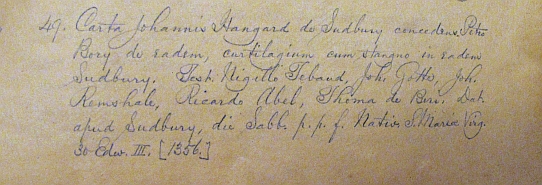 49. Carta Johannis Hangard de Sudbury concedens Petro
Bory de eadem, curtilagium cum stagno in eadem
Sudbury. Test. Nigello Tebaud, Joh. Gotte, Joh.
Remshale, Ricardo Abel, Thoma de Buri. Dat.
apud Sudbury, die Sabb. p. p. f. Nativ. S. Mariæ Virg.
30 Edw. III. [1356.]